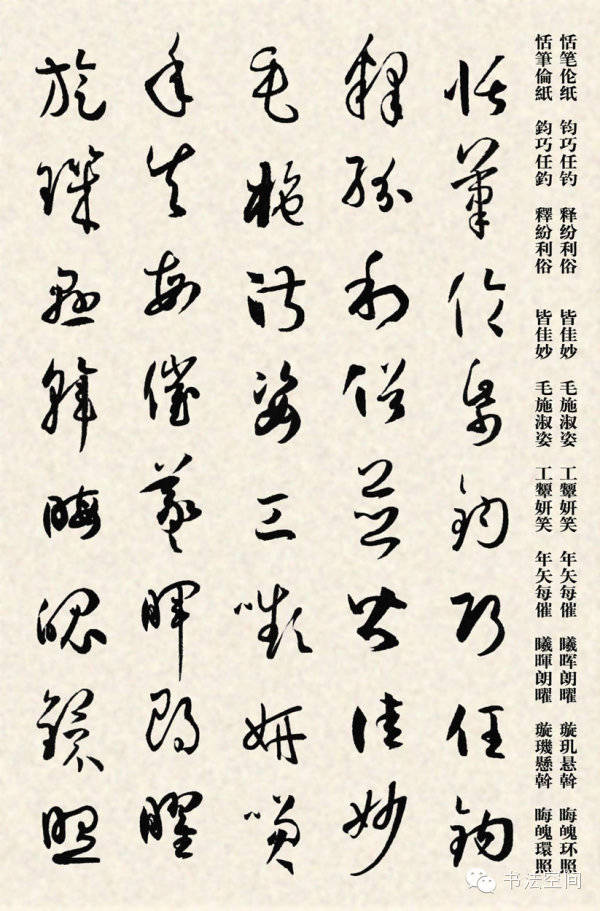 恬笔伦纸 钧巧任钓 释纷利俗 皆佳妙 毛施淑姿 工颦妍笑 年矢每催 曦晖朗曜 璇玑悬斡 晦魄环照
恬筆倫紙 鈞巧任釣 釋紛利俗 皆佳妙 毛施淑姿 工顰妍笑 年矢每催 曦暉朗曜 璇璣懸斡 晦魄環照
恬筆倫紙鈞巧任釣
釋紛利俗並皆佳妙
毛施淑姿工顰妍笑
年矢每催羲暉朗曜
璇璣懸斡晦魄環照
书法空间